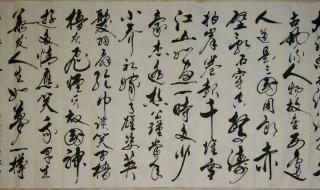 古風流人物故壘西邊
人道是三國周郎赤
壁亂石穿空驚濤
拍岸卷起千堆雪
江山如畫一時多少
豪傑遙想公瑾當年
小喬初嫁了雄姿英
發羽扇綸巾談笑間
檣櫓灰飛煙滅故國神
遊多情應笑我早生
華髮人生如夢一樽